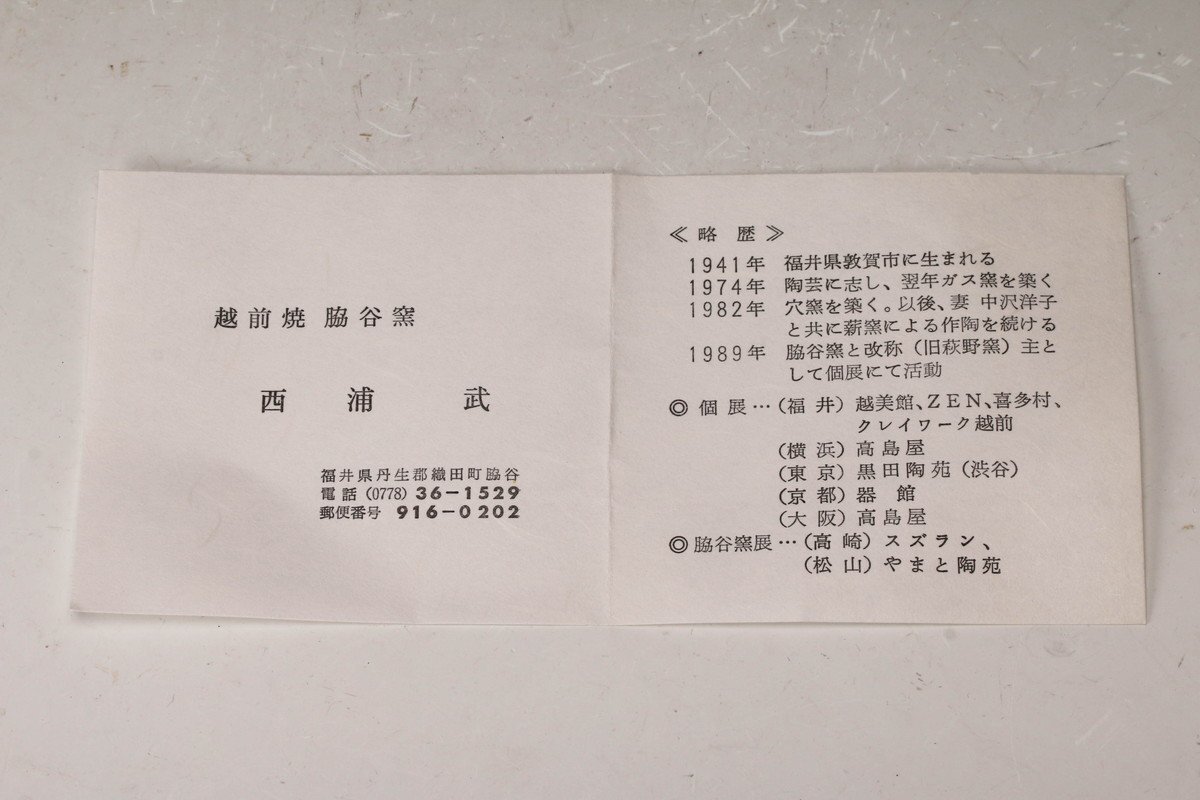 越前焼 脇谷窯
西浦 武
福井県丹生郡織田町脇谷
電話 (0778) 36-1529
郵便番号 916-0202
≪略歴≫
1941年 福井県敦賀市に生まれる
1974年 陶芸に志し、翌年ガス窯を築く
1982年 穴窯を築く。以後、妻 中沢洋子
と共に薪窯による作陶を続ける
1989年 脇谷窯と改称（旧萩野窯）主と
して個展にて活動
◎ 個展…（福井）越美館、ZEN、喜多村、
クレイワーク越前
（横浜）高島屋
（東京）黒田陶苑（渋谷）
（京都）器館
（大阪）高島屋
◎ 脇谷窯展…（高崎）スズラン、
（松山）やまと陶苑